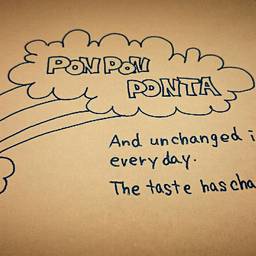 PON PON
PONTA
And unchanged
every day.
The taste has